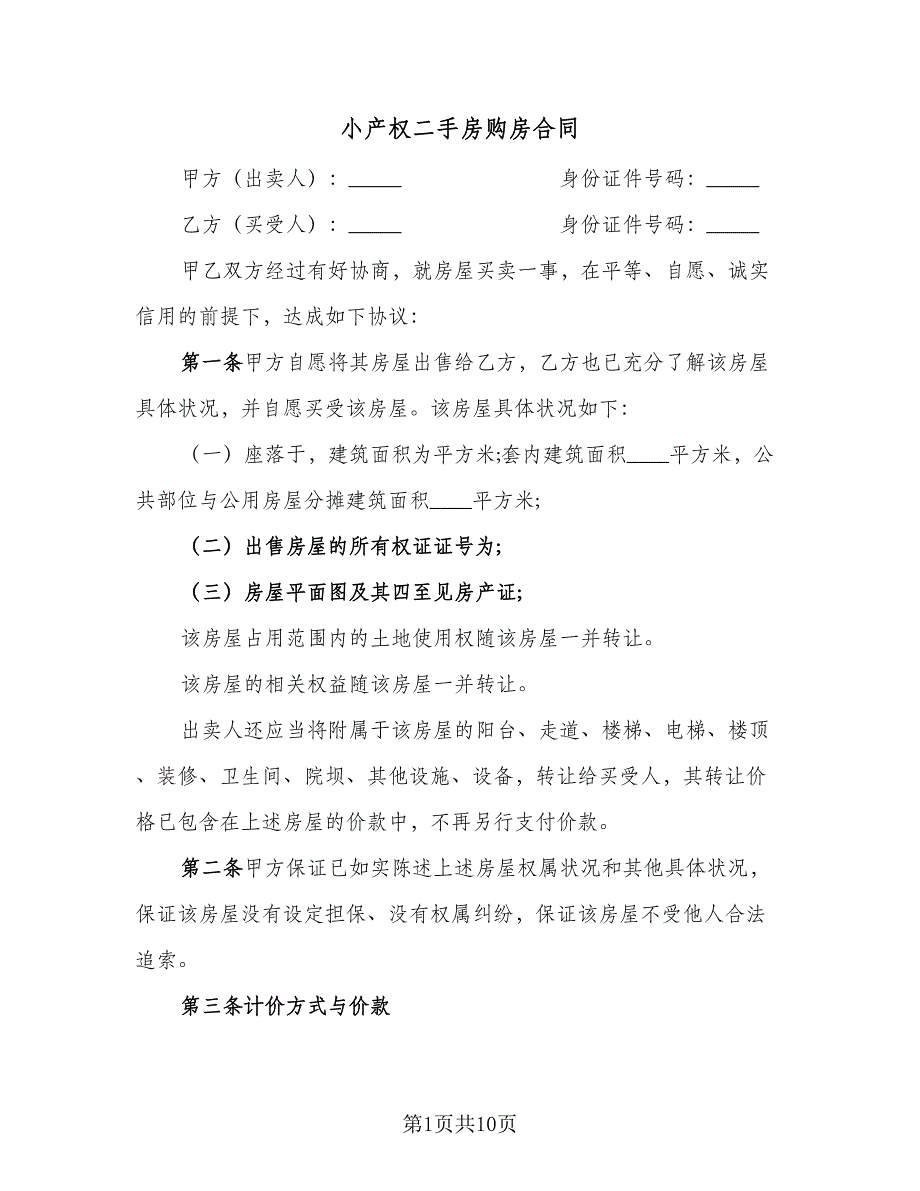 小产权二手房购房合同
甲方（出卖人）：_____ 身份证件号码：_____
乙方（买受人）：_____ 身份证件号码：_____
甲乙双方经过有好协商，就房屋买卖一事，在平等、自愿、诚实
信用的前提下，达成如下协议：
第一条甲方自愿将其房屋出售给乙方，乙方也已充分了解该房屋
具体状况，并自愿买受该房屋。该房屋具体状况如下：
（一）座落于，建筑面积为平方米;套内建筑面积____平方米，公
共部位与公用房屋分摊建筑面积____平方米;
（二）出售房屋的所有权证证号为;
（三）房屋平面图及其四至见房产证;
该房屋占用范围内的土地使用权随该房屋一并转让。
该房屋的相关权益随该房屋一并转让。
出卖人还应当将附属于该房屋的阳台、走道、楼梯、电梯、楼顶
、装修、卫生间、院坝、其他设施、设备，转让给买受人，其转让价
格已包含在上述房屋的价款中，不再另行支付价款。
第二条甲方保证已如实陈述上述房屋权属状况和其他具体状况，
保证该房屋没有设定担保、没有权属纠纷，保证该房屋不受他人合法
追索。
第三条计价方式与价款
第1页共10页